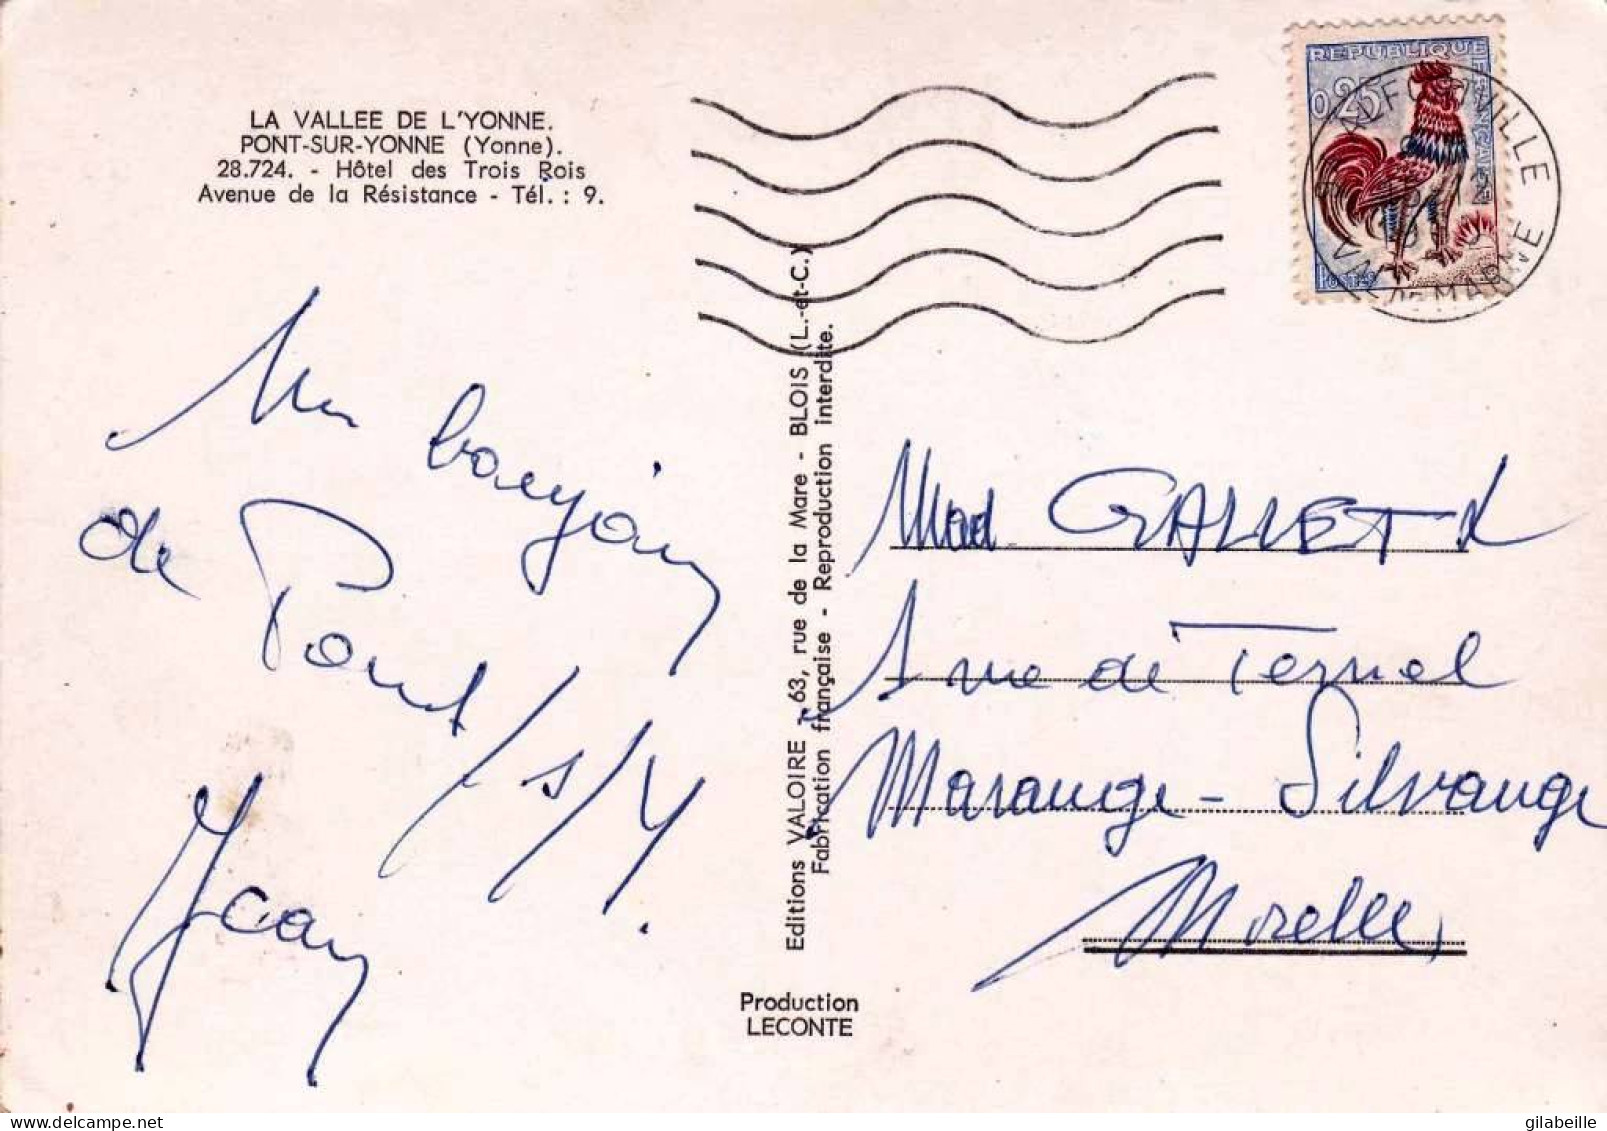 LA VALLEE DE L'YONNE.
PONT-SUR-YONNE (Yonne).
28.724. - Hôtel des Trois Rois
Avenue de la Résistance - Tél. : 9.
Un bonjour
de
Pont/s/Y.
Jean
Editions VALOIRE - 63, rue de la Mare - BLOIS (L.-et-C.)
Fabrication française - Reproduction interdite.
Production
LECONTE
REPUBLIQUE FRANÇAISE
0,25
POSTES
VILLE
VAL DE MARNE
Mad GALLET
1 rue de Ternel
Marange-Silvange
Moselle
gilabeille